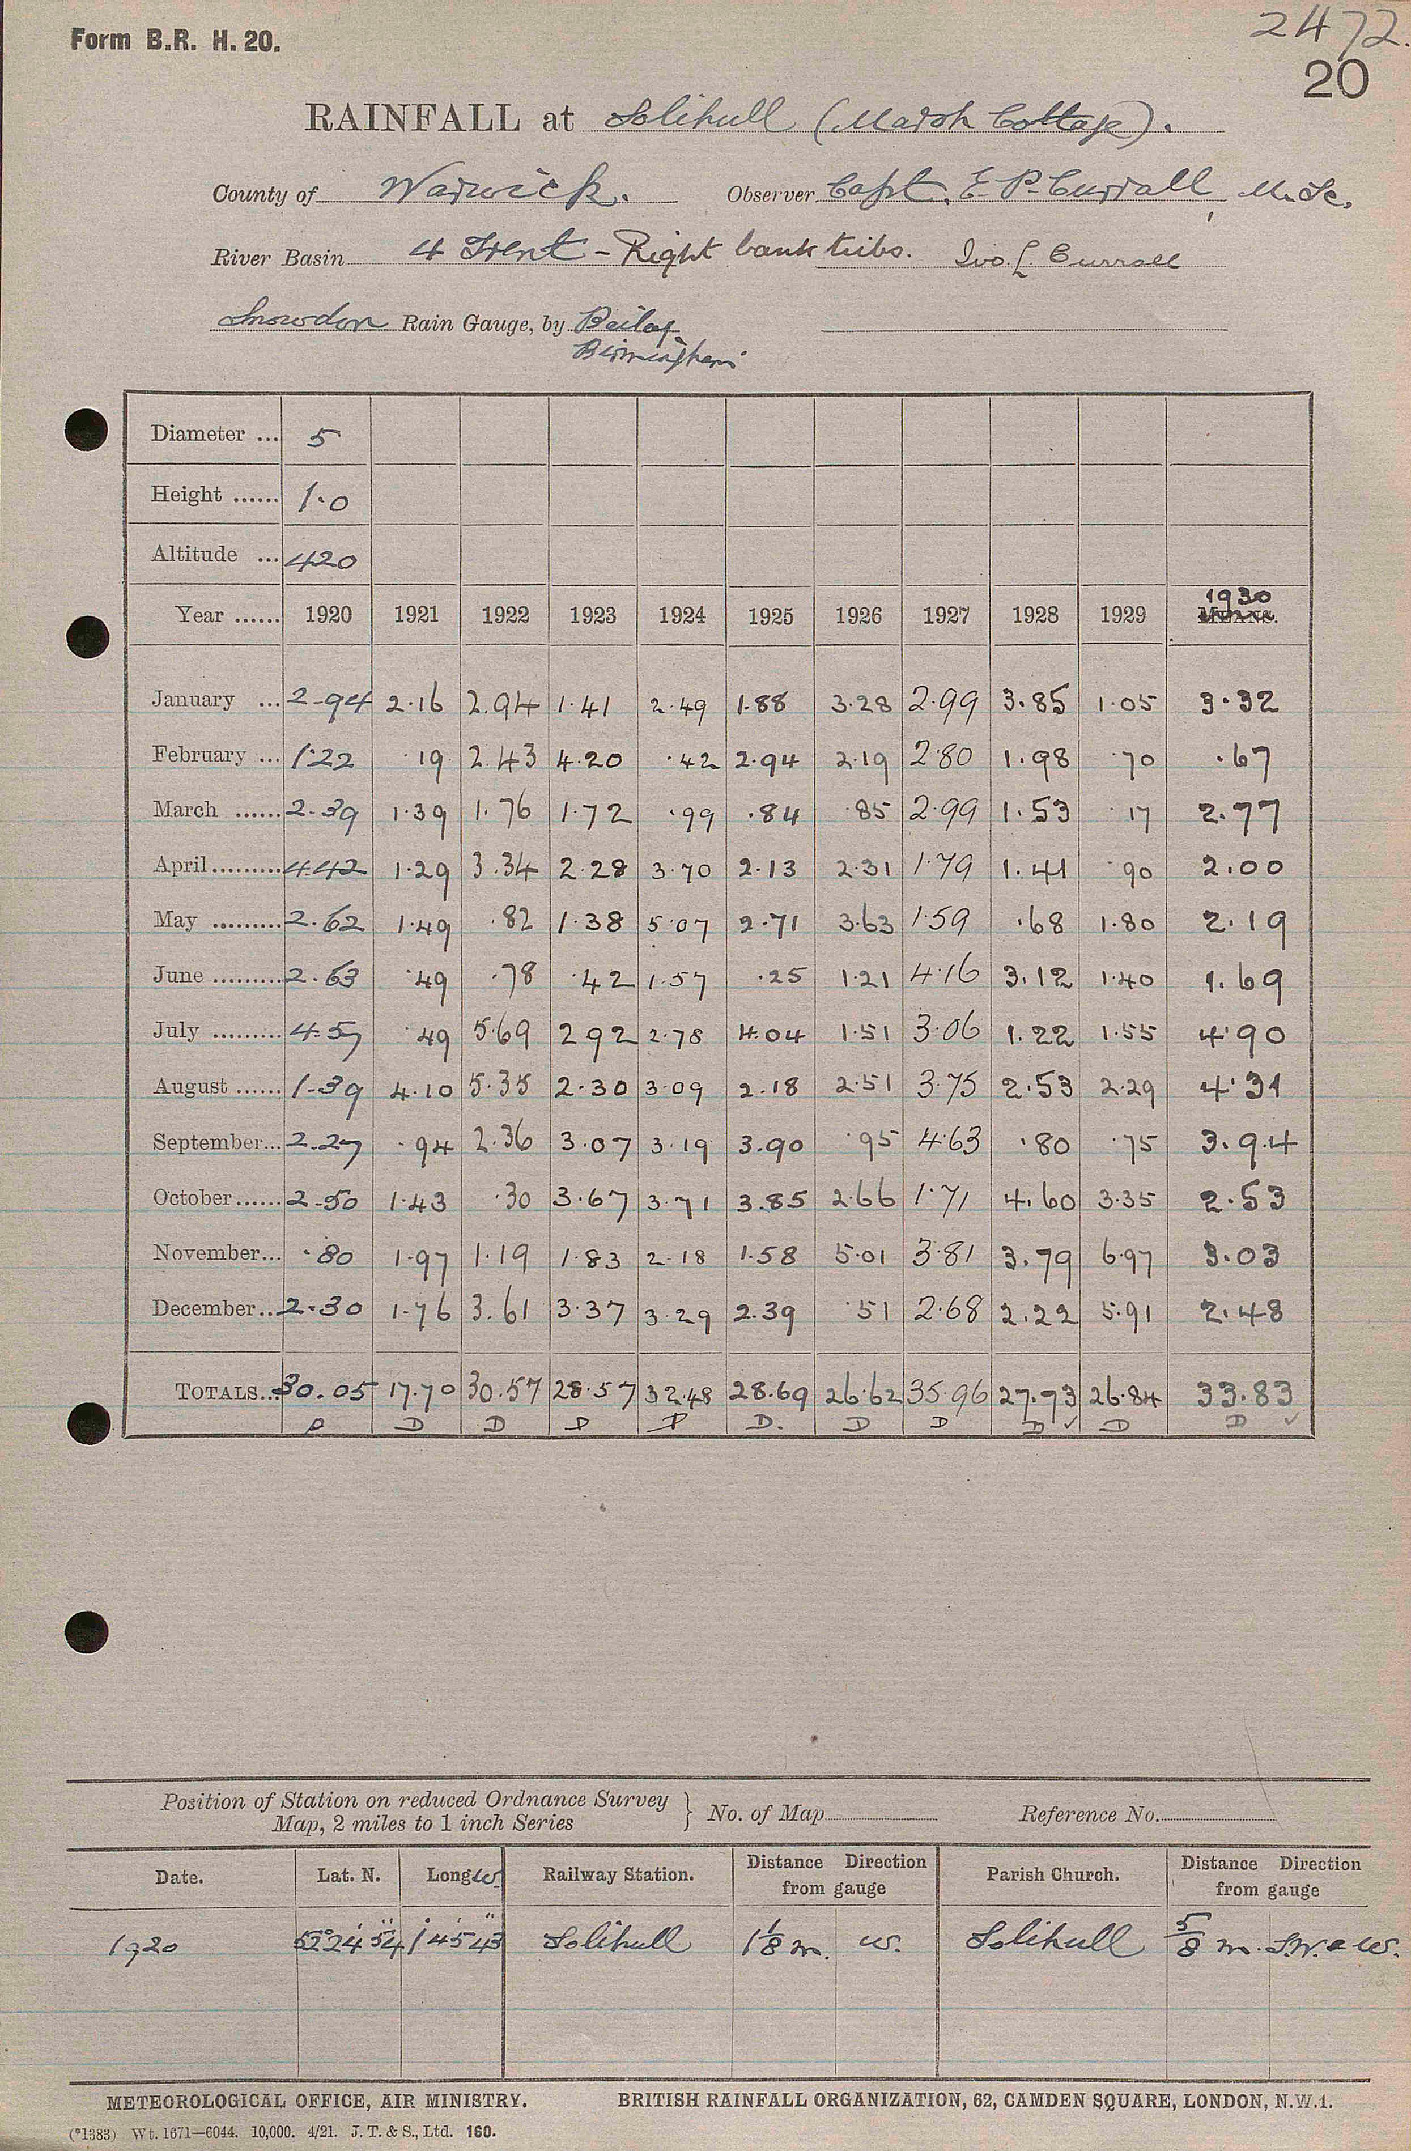 Form B.R. H. 20.
2472.
20
RAINFALL at Solihull (Marsh Cottage).
County of Warwick. Observer Capt. E. P. Currall, M.Sc.
River Basin 4 Trent - Right bank tribs. Ivo L Currall
Snowdon Rain Gauge, by Bailey
Birmingham
Diameter ... 5
Height ...... 1.0
Altitude ... 420
Year ...... 1920 1921 1922 1923 1924 1925 1926 1927 1928 1929 1930 MEANS.
January ... 2.94 2.16 2.94 1.41 2.49 1.88 3.28 2.99 3.85 1.05 3.32
February ... 1.22 .19 2.43 4.20 .42 2.94 2.19 2.80 1.98 .70 .67
March ...... 2.39 1.39 1.76 1.72 .99 .84 .85 2.99 1.53 .17 2.77
April......... 4.42 1.29 3.34 2.28 3.70 2.13 2.31 1.79 1.41 .90 2.00
May ......... 2.62 1.49 .82 1.38 5.07 2.71 3.63 1.59 .68 1.80 2.19
June ......... 2.63 .49 .78 .42 1.57 .25 1.21 4.16 3.12 1.40 1.69
July ......... 4.57 .49 5.69 2.92 2.78 4.04 1.51 3.06 1.22 1.55 4.90
August ...... 1.39 4.10 5.35 2.30 3.09 2.18 2.51 3.75 2.53 2.29 4.31
September... 2.27 .94 2.36 3.07 3.19 3.90 .95 4.63 .80 .75 3.94
October...... 2.50 1.43 .30 3.67 3.71 3.85 2.66 1.71 4.60 3.35 2.53
November... .80 1.97 1.19 1.83 2.18 1.58 5.01 3.81 3.79 6.97 3.03
December... 2.30 1.76 3.61 3.37 3.29 2.39 .51 2.68 2.22 5.91 2.48
TOTALS... 30.05 17.70 30.57 28.57 32.48 28.69 26.62 35.96 27.73 26.84 33.83
D D D D D D. D D D ✓ D D ✓
Position of Station on reduced Ordnance Survey
Map, 2 miles to 1 inch Series } No. of Map Reference No.
Date. Lat. N. Long W. Railway Station. Distance Direction from gauge Parish Church. Distance Direction from gauge
1920 52° 24' 54" 1° 45' 43" Solihull 1 1/8 m. W. Solihull 5/8 m. S.W. W.
METEOROLOGICAL OFFICE, AIR MINISTRY. BRITISH RAINFALL ORGANIZATION, 62, CAMDEN SQUARE, LONDON, N.W.1.
(*1383) Wt. 1671—6044. 10,000. 4/21. J. T. & S., Ltd. 160.